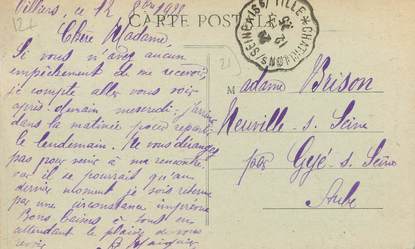 Villars, ce 12 8bre 1922
CARTE POSTALE
Chère Madame,
Si vous n'avez aucun
empêchement de me recevoir
je compte aller vous voir
après demain mercredi. J'arrive
dans la matinée pour repartir
le lendemain. Ne vous dérangez
pas pour venir à ma rencontre
car il se pourrait qu'au
dernier moment je sois retenue
par une circonstance imprévue
Bons baisers à tous en
attendant le plaisir de vous
revoir
Madame Brison
Neuville s. Seine
par Gyé s. Seine
Aube
CHATILLON S SEINE